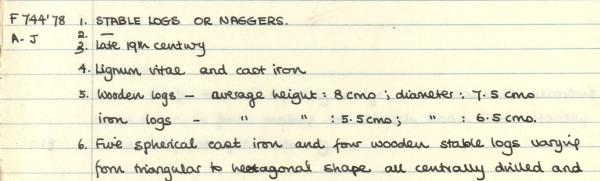 F744'78 1. STABLE LOGS OR NAGGERS.
A-J 2. —
3. Late 19th century
4. Lignum vitae and cast iron
5. Wooden logs – average height : 8 cms ; diameter : 7.5 cms
iron logs – " " : 5.5 cms ; " : 6.5 cms.
6. Five spherical cast iron and four wooden stable logs varying
from triangular to hextagonal shape all centrally drilled and